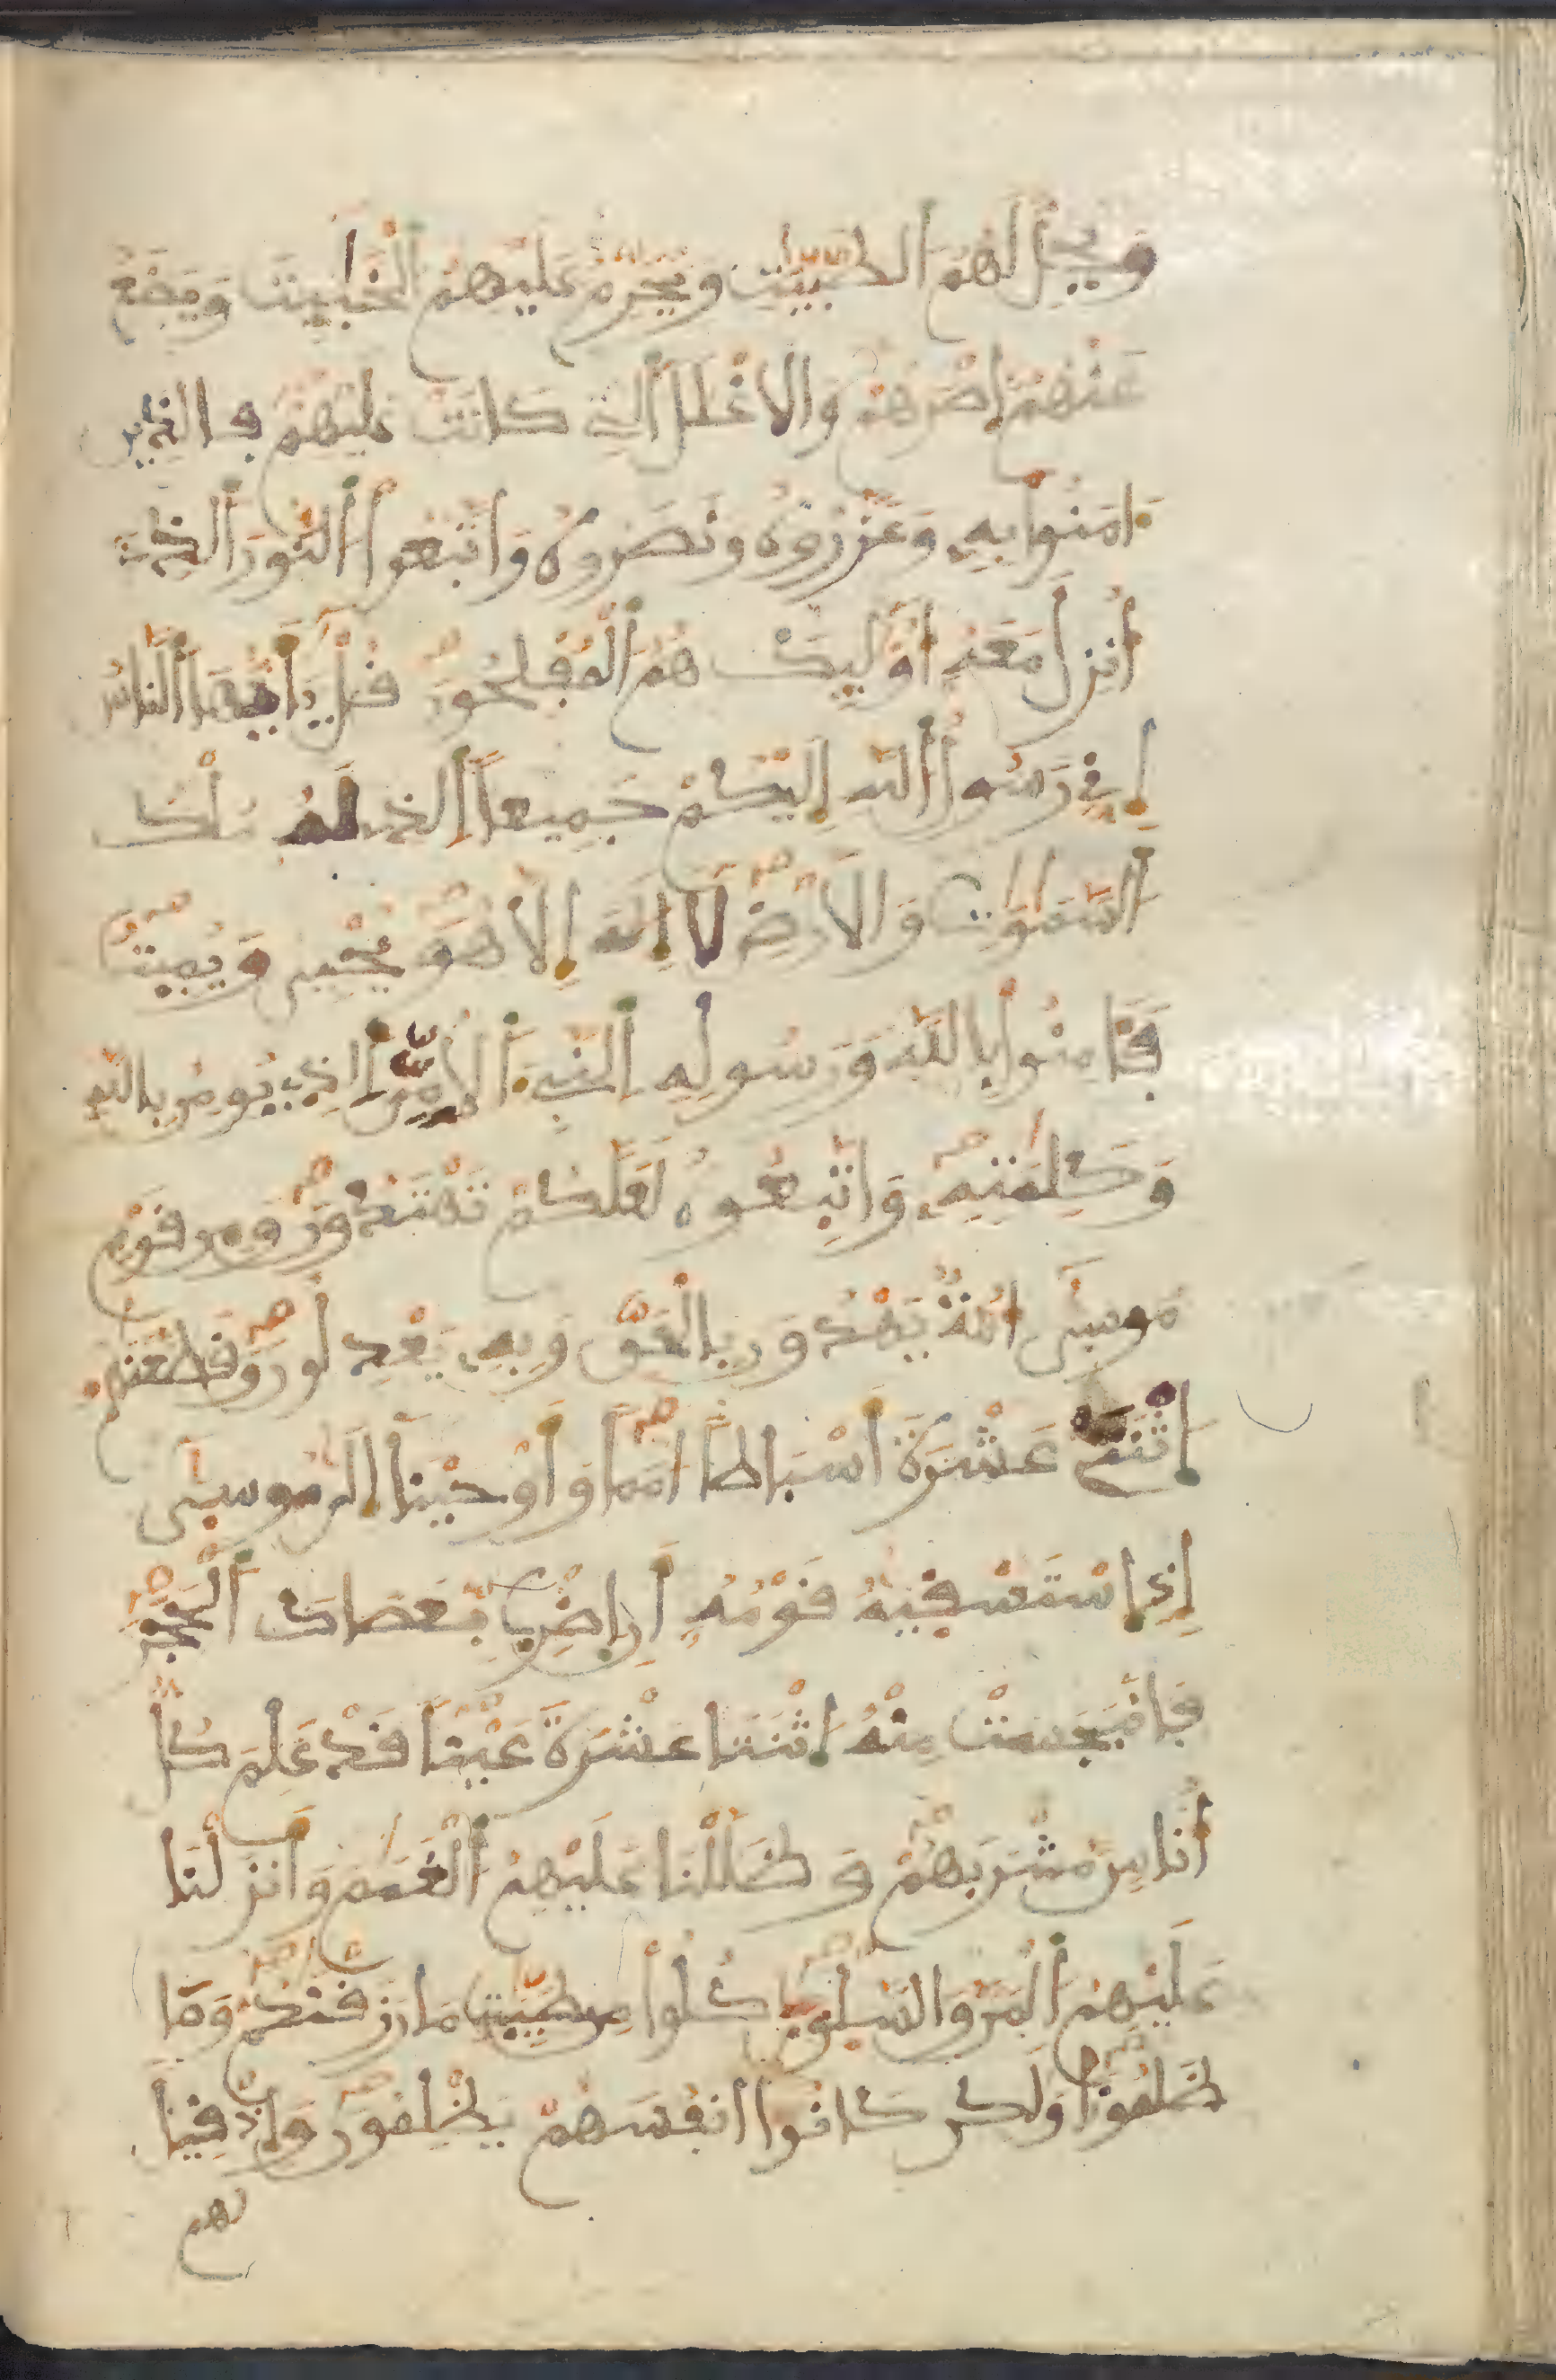 وَيُحِلُّ لَهُمُ الطَّيِّبَٰتِ وَيُحَرِّمُ عَلَيْهِمُ الْخَبَٰٓئِثَ وَيَضَعُ
عَنْهُمْ إِصْرَهُمْ وَالَاغْلَٰلَ الَّتِے كَانَتْ عَلَيْهِمْ فَالذِينَ
ءَامَنُوا بِهِ وَعَزَّرُوهُ وَنَصَرُوهُ وَاتَّبَعُوا النُّورَ الذِے
أُنزِلَ مَعَهُ أُوْلَٰٓئِكَ هُمُ الْمُفْلِحُونَ قُلْ يَٰٓأَيُّهَا النَّاسُ
إِنِّے رَسُولُ اللَّهِ إِلَيْكُمْ جَمِيعاً الذِے لَهُ مُلْكُ
السَّمَٰوَٰتِ وَالَارْضِ لَا إِلَٰهَ إِلَّا هُوَ يُحْيِے وَيُمِيتُ
فَـَٔامِنُوا بِاللَّهِ وَرَسُولِهِ النَّبِےءِ الُامِّيِّ الذِے يُومِنُ بِاللَّهِ
وَكَلِمَٰتِهِ وَاتَّبِعُوهُ لَعَلَّكُمْ تَهْتَدُونَ وَمِن قَوْمِ
مُوسَىٰ أُمَّةٌ يَهْدُونَ بِالْحَقِّ وَبِهِ يَعْدِلُونَ وَقَطَّعْنَٰهُمُ
اثْنَتَےْ عَشْرَةَ أَسْبَاطاً أُمَماً وَأَوْحَيْنَا إِلَىٰ مُوسَىٰ
إِذِ اسْتَسْقَيٰهُ قَوْمُهُ أَنِ اضْرِب بِّعَصَاكَ الْحَجَرَ
فَانبَجَسَتْ مِنْهُ اثْنَتَا عَشْرَةَ عَيْناً قَدْ عَلِمَ كُلُّ
أُنَاسٍ مَّشْرَبَهُمْ وَظَلَّلْنَا عَلَيْهِمُ الْغَمَٰمَ وَأَنزَلْنَا
عَلَيْهِمُ الْمَنَّ وَالسَّلْوَىٰ كُلُوا مِن طَيِّبَٰتِ مَا رَزَقْنَٰكُمْ وَمَا
ظَلَمُونَا وَلَٰكِن كَانُوا أَنفُسَهُمْ يَظْلِمُونَ وَإِذْ قِيلَ
لهم